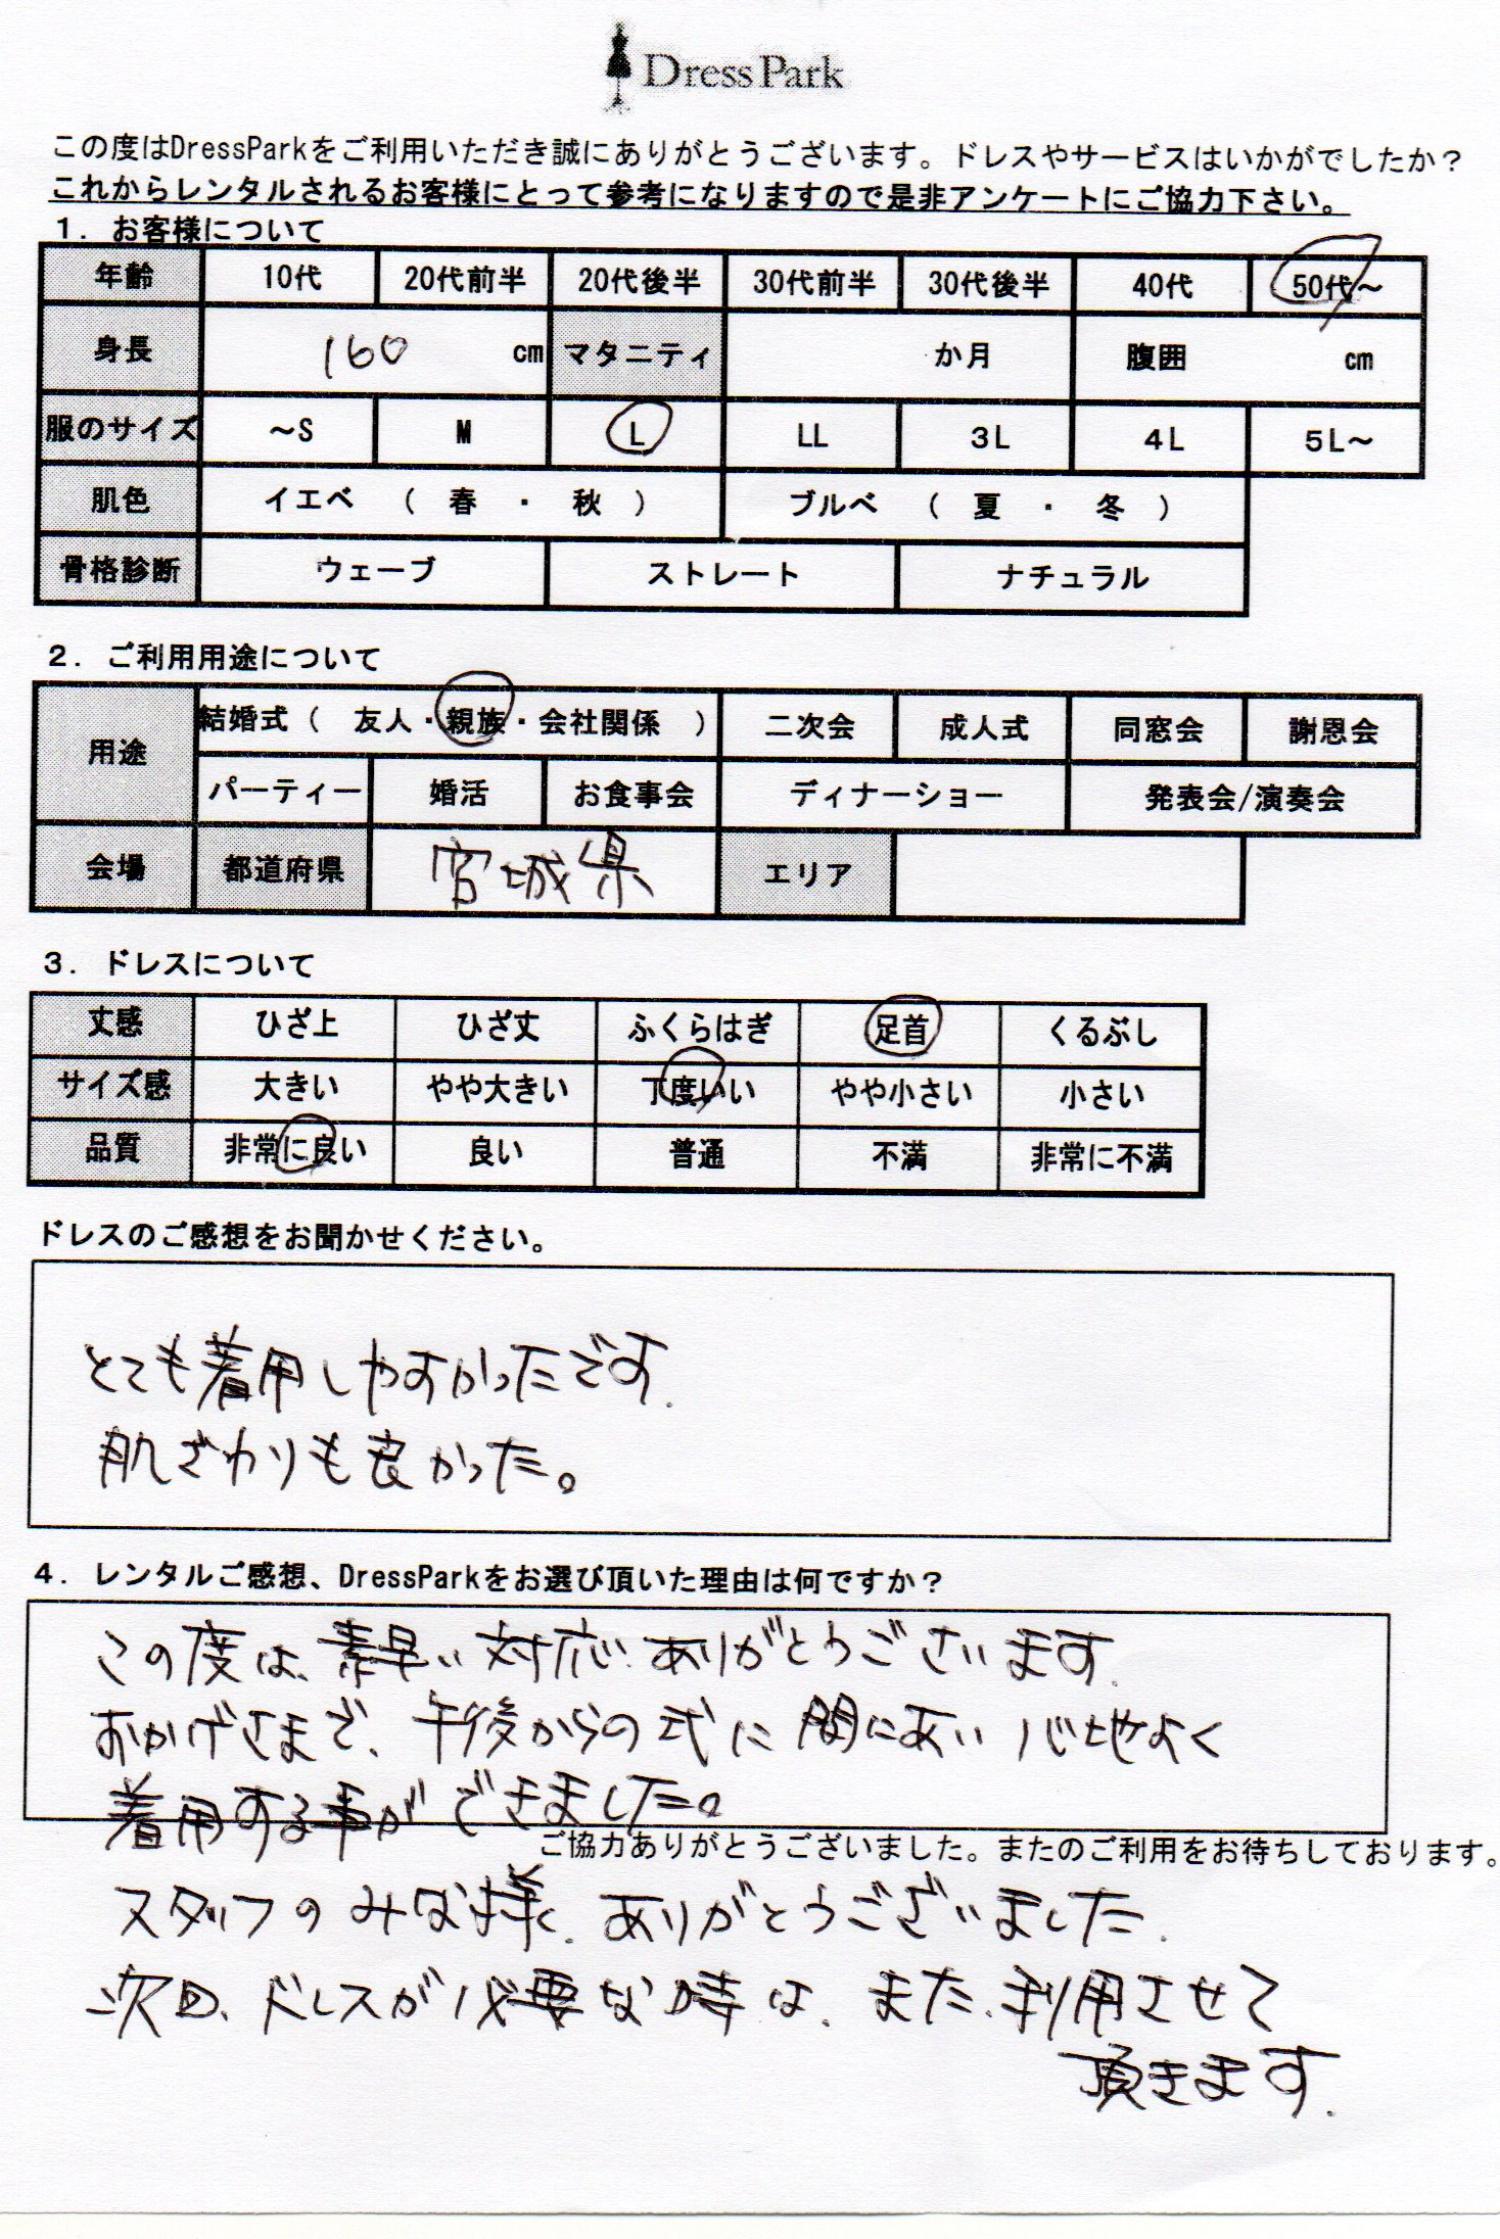 Dress Park
この度はDressParkをご利用いただき誠にありがとうございます。ドレスやサービスはいかがでしたか？
これからレンタルされるお客様にとって参考になりますので是非アンケートにご協力下さい。
１．お客様について
年齢 10代 20代前半 20代後半 30代前半 30代後半 40代 50代～
身長 160 cm マタニティ か月 腹囲 cm
服のサイズ ～S M L LL 3L 4L 5L～
肌色 イエベ （ 春 ・ 秋 ） ブルベ （ 夏 ・ 冬 ）
骨格診断 ウェーブ ストレート ナチュラル
２．ご利用用途について
用途 結婚式（ 友人・親族・会社関係 ） 二次会 成人式 同窓会 謝恩会
パーティー 婚活 お食事会 ディナーショー 発表会/演奏会
会場 都道府県 宮城県 エリア
３．ドレスについて
丈感 ひざ上 ひざ丈 ふくらはぎ 足首 くるぶし
サイズ感 大きい やや大きい 丁度いい やや小さい 小さい
品質 非常に良い 良い 普通 不満 非常に不満
ドレスのご感想をお聞かせください。
とても着用しやすかったです.
肌ざわりも良かった。
４．レンタルご感想、DressParkをお選び頂いた理由は何ですか？
この度は、素早い対応、ありがとうございます.
おかげさまで、午後からの式に間にあい心地よく
着用する事ができました。
ご協力ありがとうございました。またのご利用をお待ちしております。
スタッフのみな様、ありがとうございました.
次回、ドレスが必要な時は、また、利用させて
頂きます.